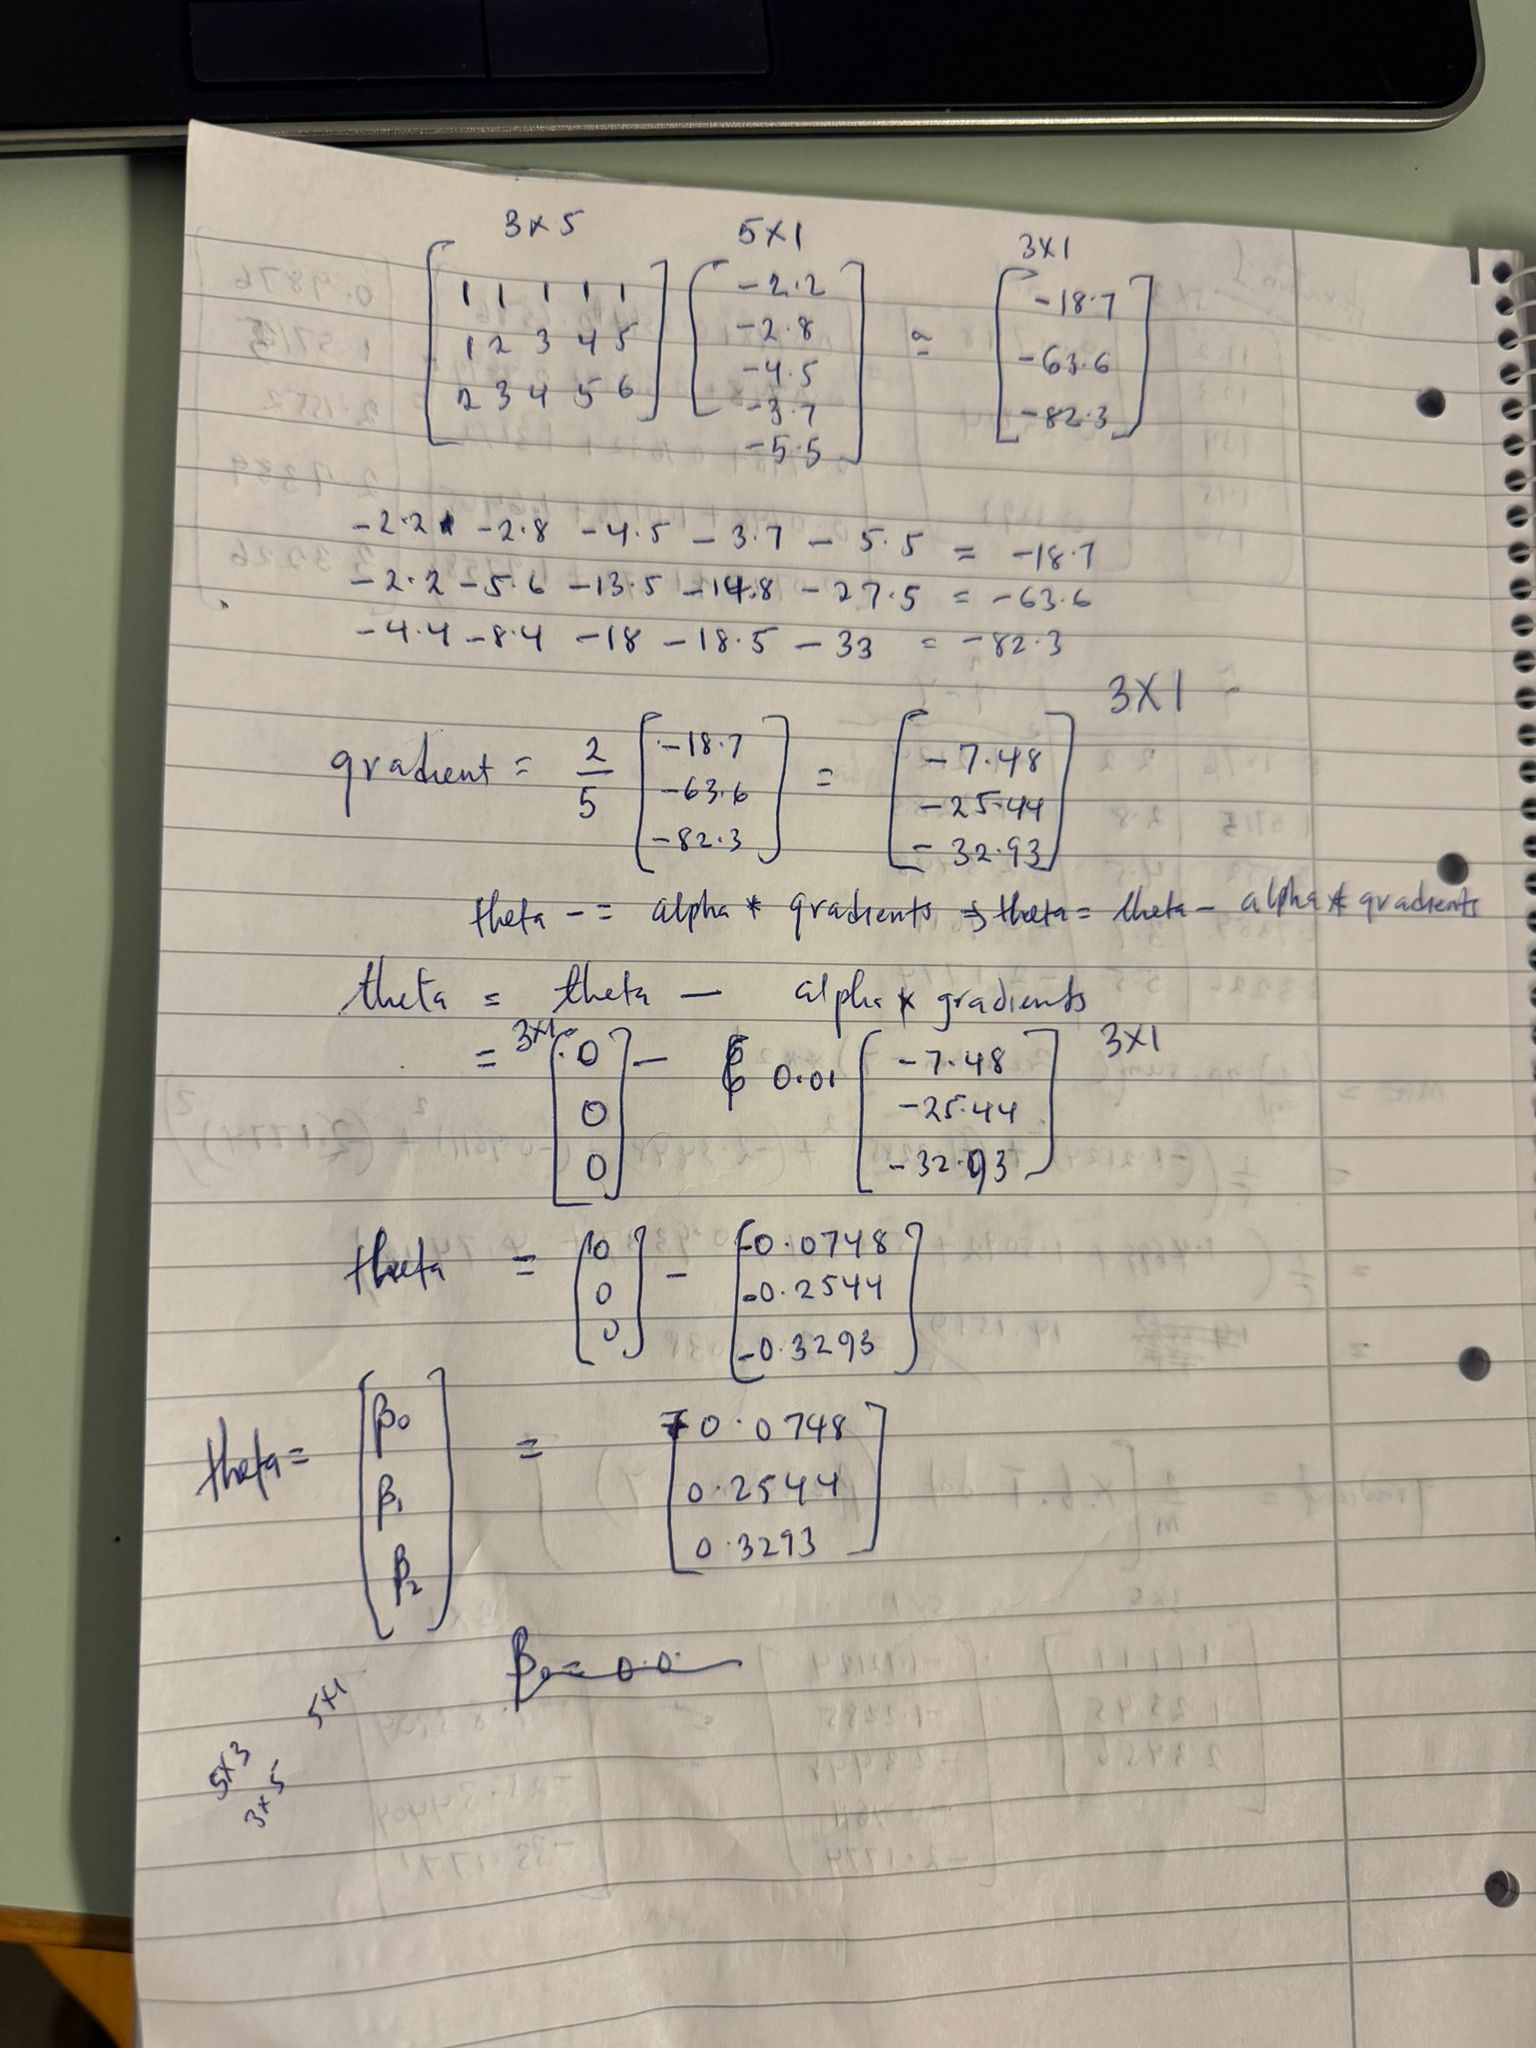 3×5 5×1 3×1
[1 1 1 1 1 [-2.2 [-18.7
1 2 3 4 5 -2.8 = -63.6
2 3 4 5 6] -4.5 -82.3]
-3.7
-5.5]
-2.2 -2.8 -4.5 -3.7 -5.5 = -18.7
-2.2 -5.6 -13.5 -14.8 -27.5 = -63.6
-4.4 -8.4 -18 -18.5 -33 = -82.3
3×1
gradient = 2/5 [-18.7 = [-7.48
-63.6 -25.44
-82.3] -32.93]
theta -= alpha * gradients ⇒ theta = theta - alpha * gradients
theta = theta - alpha * gradients
= 3×1 [0 - 0.01 [-7.48 3×1
0 -25.44
0] -32.93]
theta = [0 - [-0.0748
0 -0.2544
0] -0.3293]
theta = [β0 = [0.0748
β1 0.2544
β2] 0.3293]
β0 = 0.0
5×1
5×3
3×5